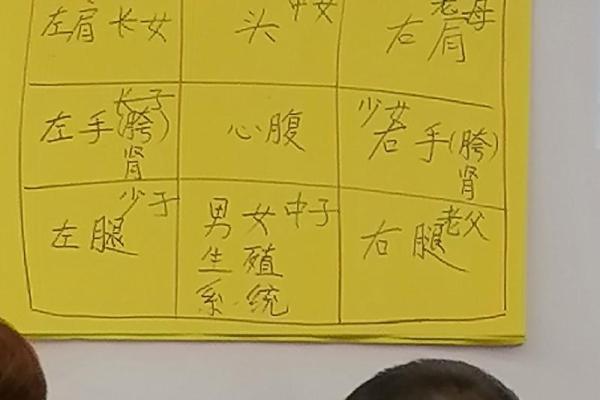 左肩 长女
头 中女
右肩 老母
左手(胯)肾 长子
心腹
右手(胯)肾 少女
左腿 少子
男女生殖系统 中子
右腿 老父